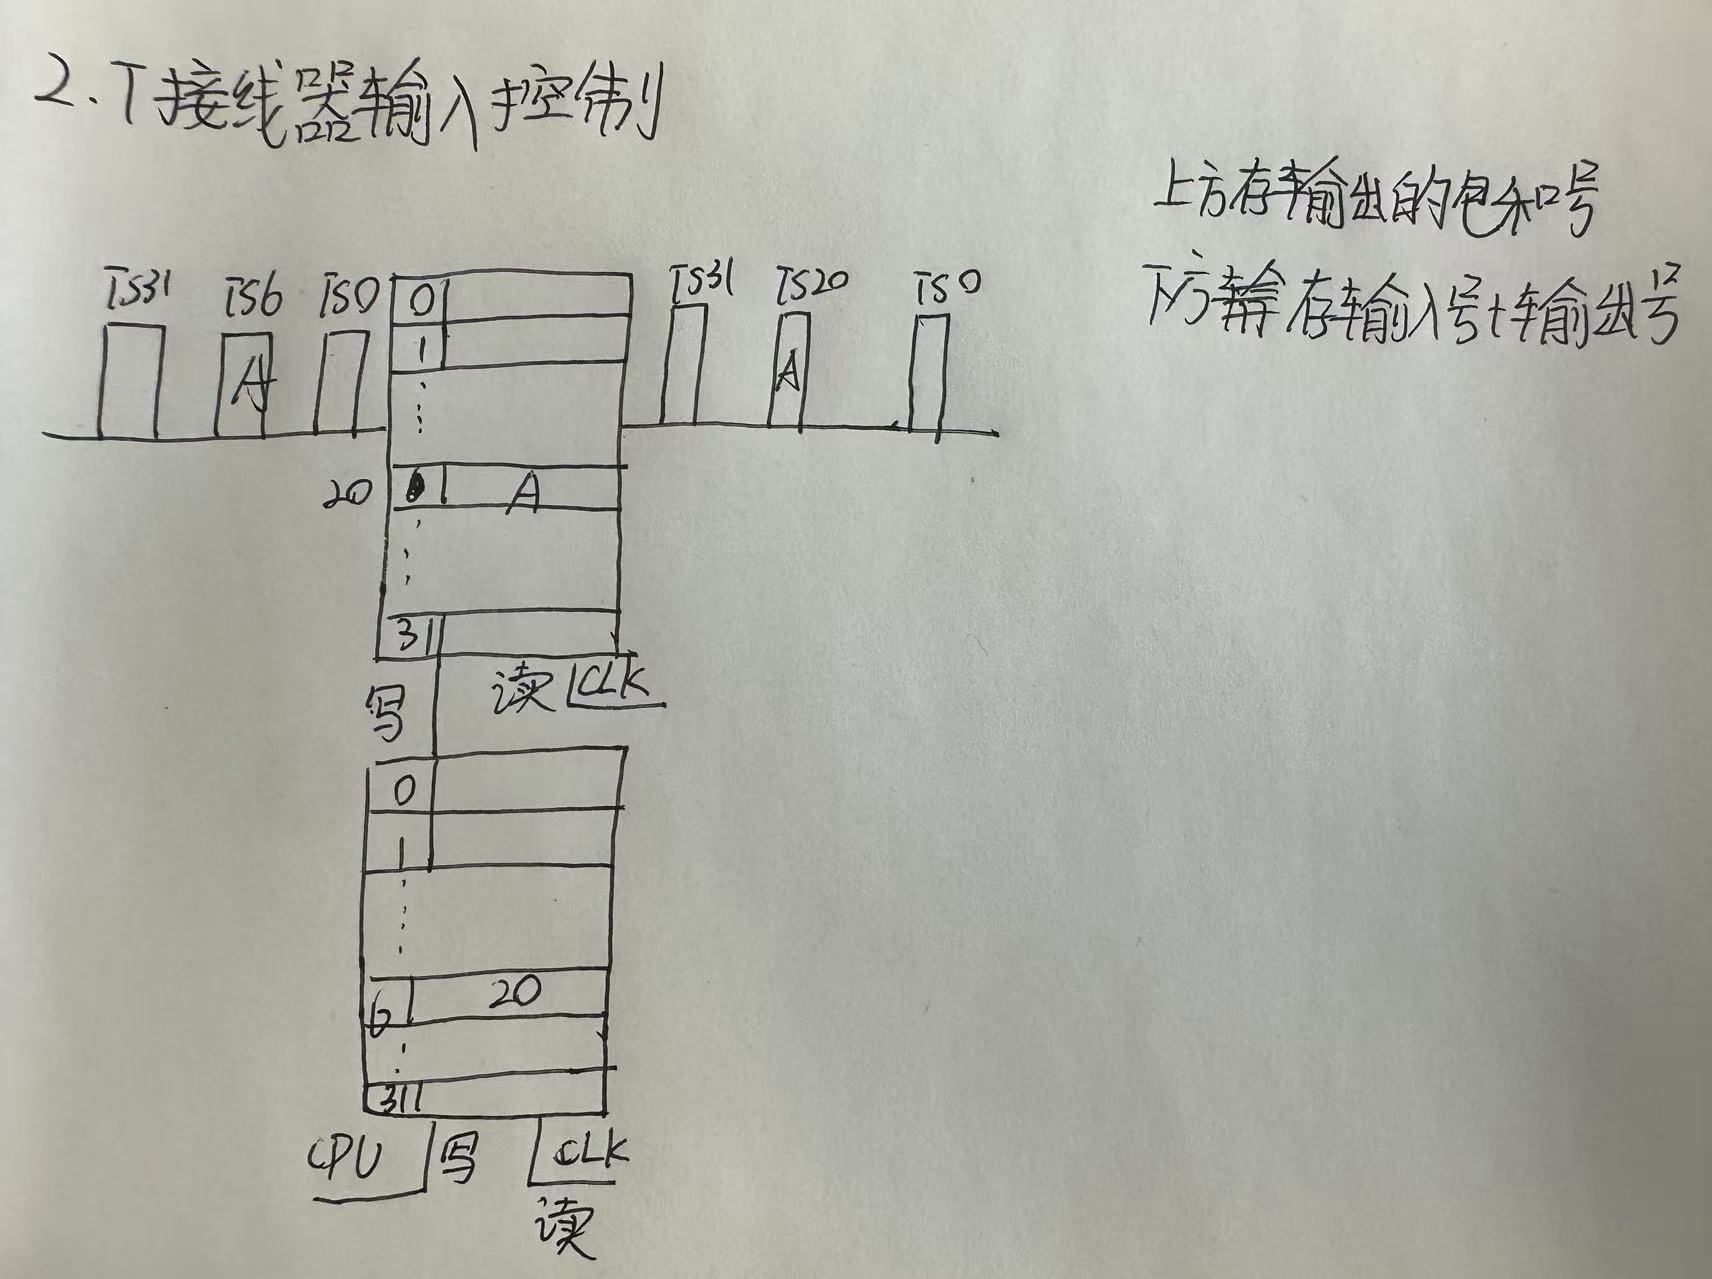 2.T接线器输入控制
上方存输出的包和号
下方存输入号+输出号
TS31 TS6 TS0
A
0
1
20 A
31
TS31 TS20 TS0
A
写 读 CLK
0
1
6 20
31
CPU 写 CLK
读